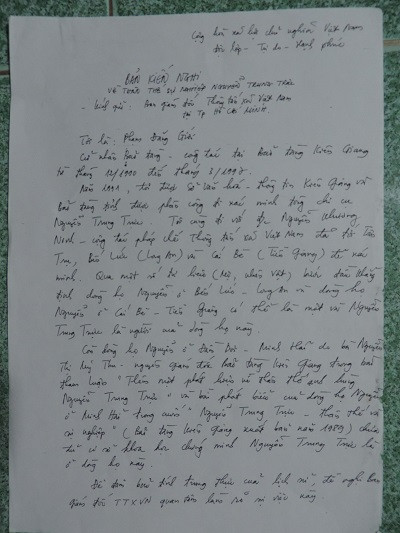 Cộng hòa xã hội chủ nghĩa Việt Nam
Độc lập - Tự do - Hạnh phúc
BẢN KIẾN NGHỊ
VỀ THÂN THẾ SỰ NGHIỆP NGUYỄN TRUNG TRỰC
- Kính gửi: Ban giám đốc Thông tấn xã Việt Nam
tại Tp HỒ CHÍ MINH.
Tôi là: Phan Đăng
Cử nhân Bảo tàng - công tác tại Bảo tàng Kiên Giang
từ tháng 12/1990 đến tháng 8/1997.
Năm 1991, tôi được Sở văn hoá - thông tin Kiên Giang và
Bảo tàng tỉnh được phân công đi xác minh dòng họ cụ
Nguyễn Trung Trực. Tôi cùng đi với ông Nguyễn Khương
Ninh - công tác Thông tấn xã Việt Nam đã tới Tân
Trụ, Bến Lức (Long An) và Cái Bè (Tiền Giang) để xác
minh. Qua một số tư liệu (Mộ, nhân vật) bước đầu khẳng
định dòng họ Nguyễn ở Bến Lức - Long An và dòng họ
Nguyễn ở Cái Bè - Tiền Giang có thể là một và Nguyễn
Trung Trực là người của dòng họ này.
Còn dòng họ Nguyễn ở Đầm Dơi - Minh Hải do bà Nguyễn
Thị Mỹ - nguyên giám đốc Bảo tàng Kiên Giang trong bài
tham luận "Thêm một phát hiện về thân thế anh hùng
Nguyễn Trung Trực" và bài phát biểu của dòng họ Nguyễn
ở Minh Hải trong cuốn "Nguyễn Trung Trực - thân thế và
sự nghiệp" (Bảo tàng Kiên Giang xuất bản năm 1989) chưa
cơ sở khoa học chứng minh Nguyễn Trung Trực là
ở dòng họ này.
Để đảm bảo tính trung thực của lịch sử, đề nghị Ban
giám đốc TTXVN quan tâm làm rõ sự việc này.